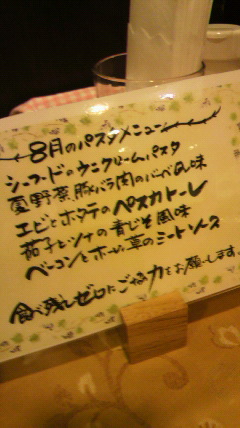 8月のパスタメニュー
シーフードのウニクリームパスタ
夏野菜豚バラ肉のバーベQ味
エビとホタテのペスカトーレ
茄子とツナの青じそ風味
ベーコンとホーレン草のミートソース
食べ残しゼロにご協力をお願いします